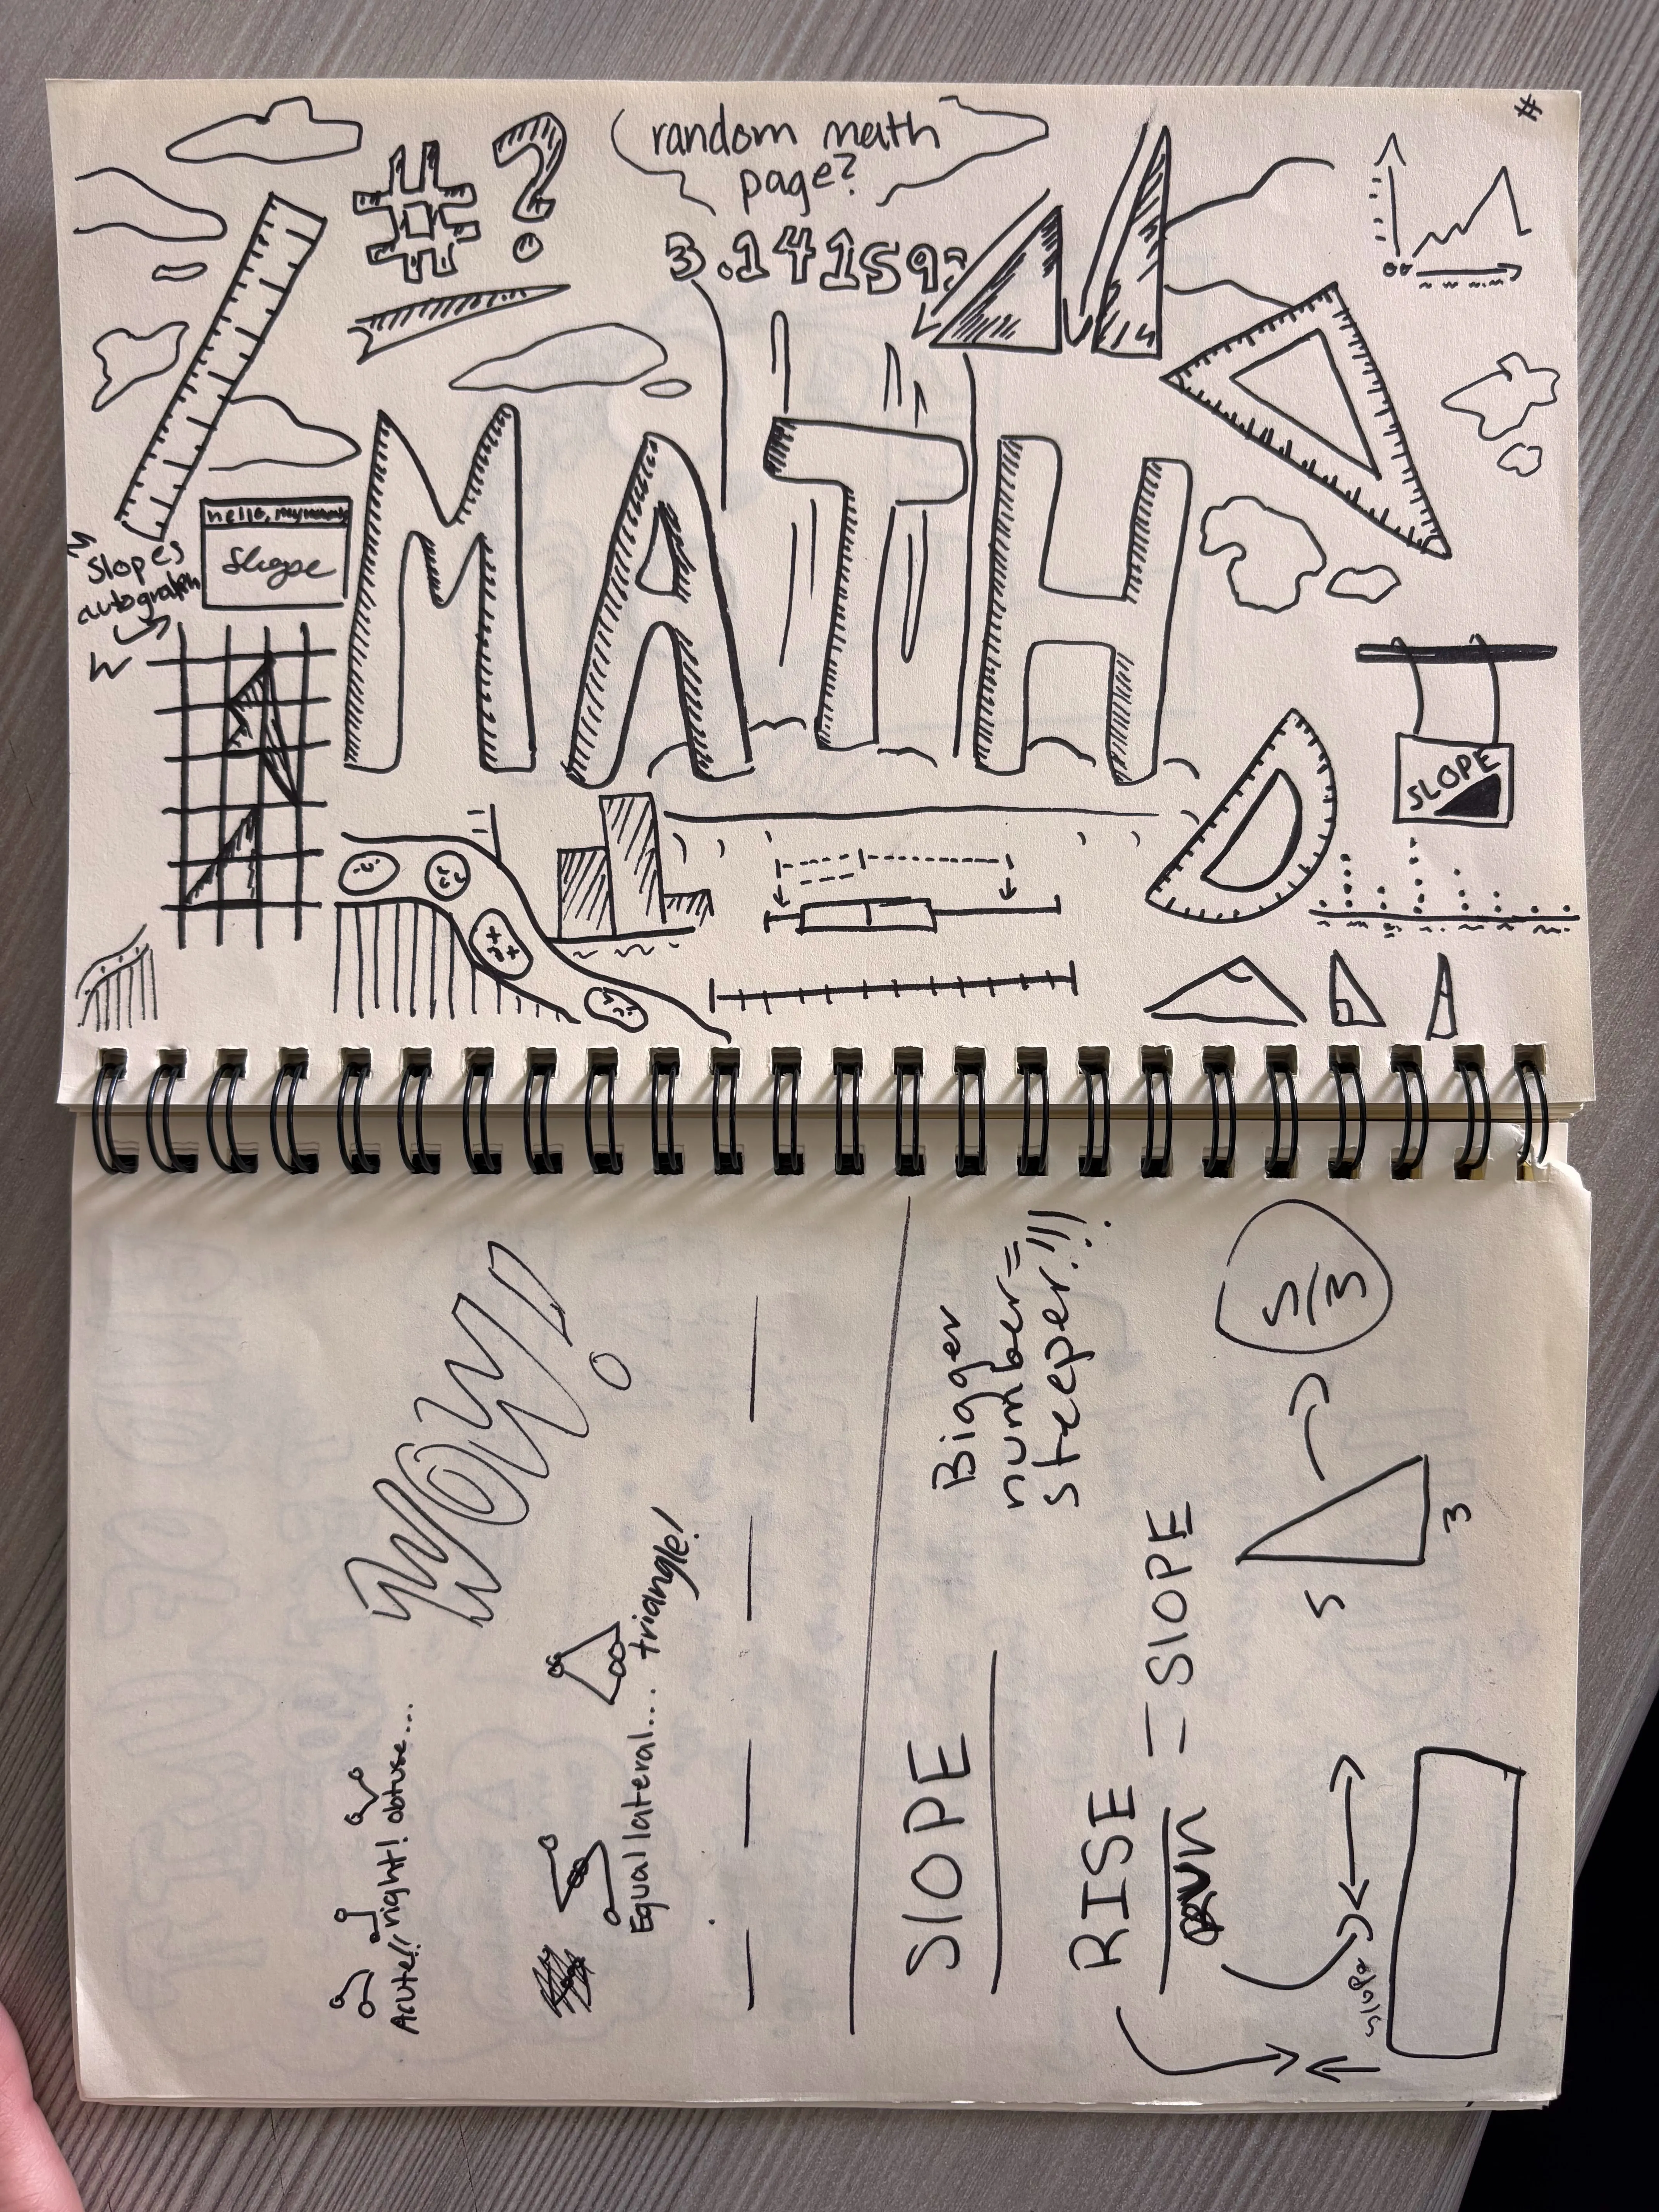 #
# ?
random math
page?
3.14159?
hello, my
Slope
Slopes
autograph
MATH
SLOPE
WOW!
Acute!! right! obtuse...
Equal lateral... triangle!
SlOPE
Bigger
number=
steeper!!!
RISE
run
= SlOPE
5
3
5/3
slope